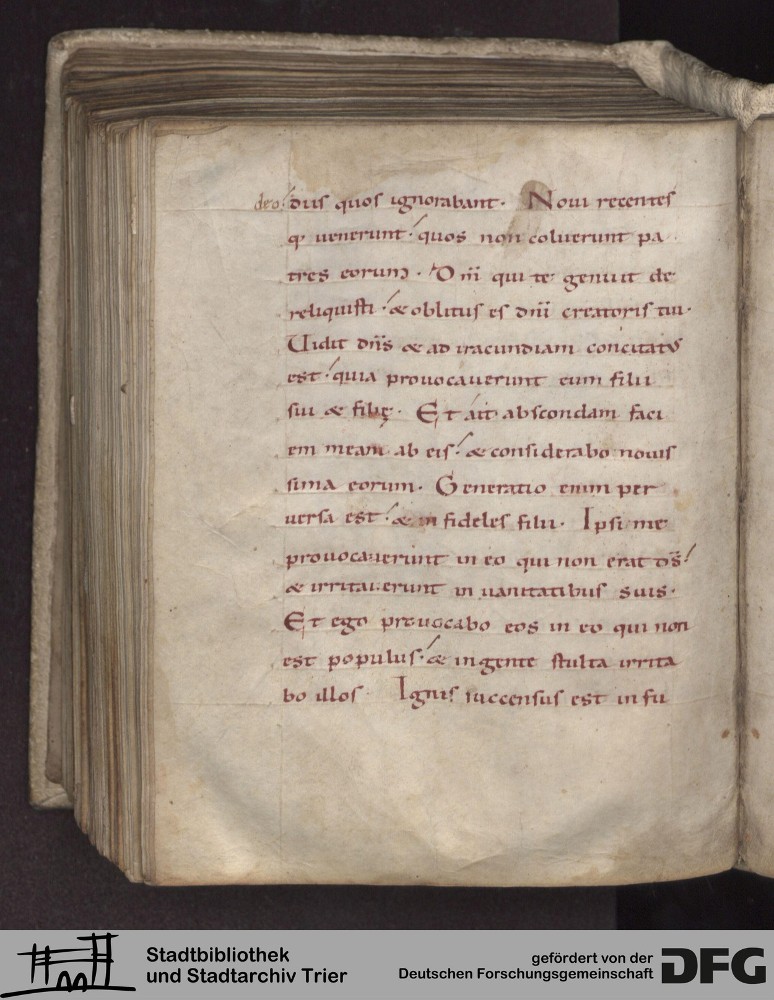 deo? diis quos ignorabant. Noui recentes
q; uenerunt: quos non coluerunt pa
tres eorum. Dm̄ qui te genuit de
reliquisti: & oblitus es dn̄i creatoris tui.
Uidit dn̄s & ad iracundiam concitatus
est: quia prouocauerunt eum filii
sui & filię. Et ait abscondam faci
em meam ab eis: & considerabo nouis
sima eorum. Generatio enim per
uersa est: & infideles filii. Ipsi me
prouocauerunt in eo qui non erat ds̄:
& irritauerunt in uanitatibus suis.
Et ego prouocabo eos in eo qui non
est populus: & in gente stulta irrita
bo illos. Ignis succensus est in fu
Stadtbibliothek
und Stadtarchiv Trier
gefördert von der
Deutschen Forschungsgemeinschaft
DFG